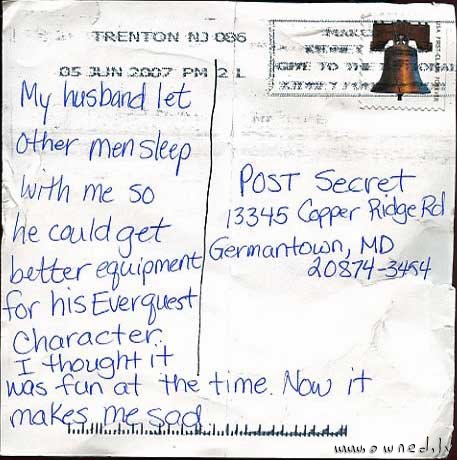 TRENTON NJ 086
05 JUN 2007 PM 2 L
My husband let
other men sleep
with me so
he could get
better equipment
for his Everquest
Character.
I thought it
was fun at the time. Now it
makes me sad
POST Secret
13345 Copper Ridge Rd
Germantown, MD
20874-3454
www.owned.lv